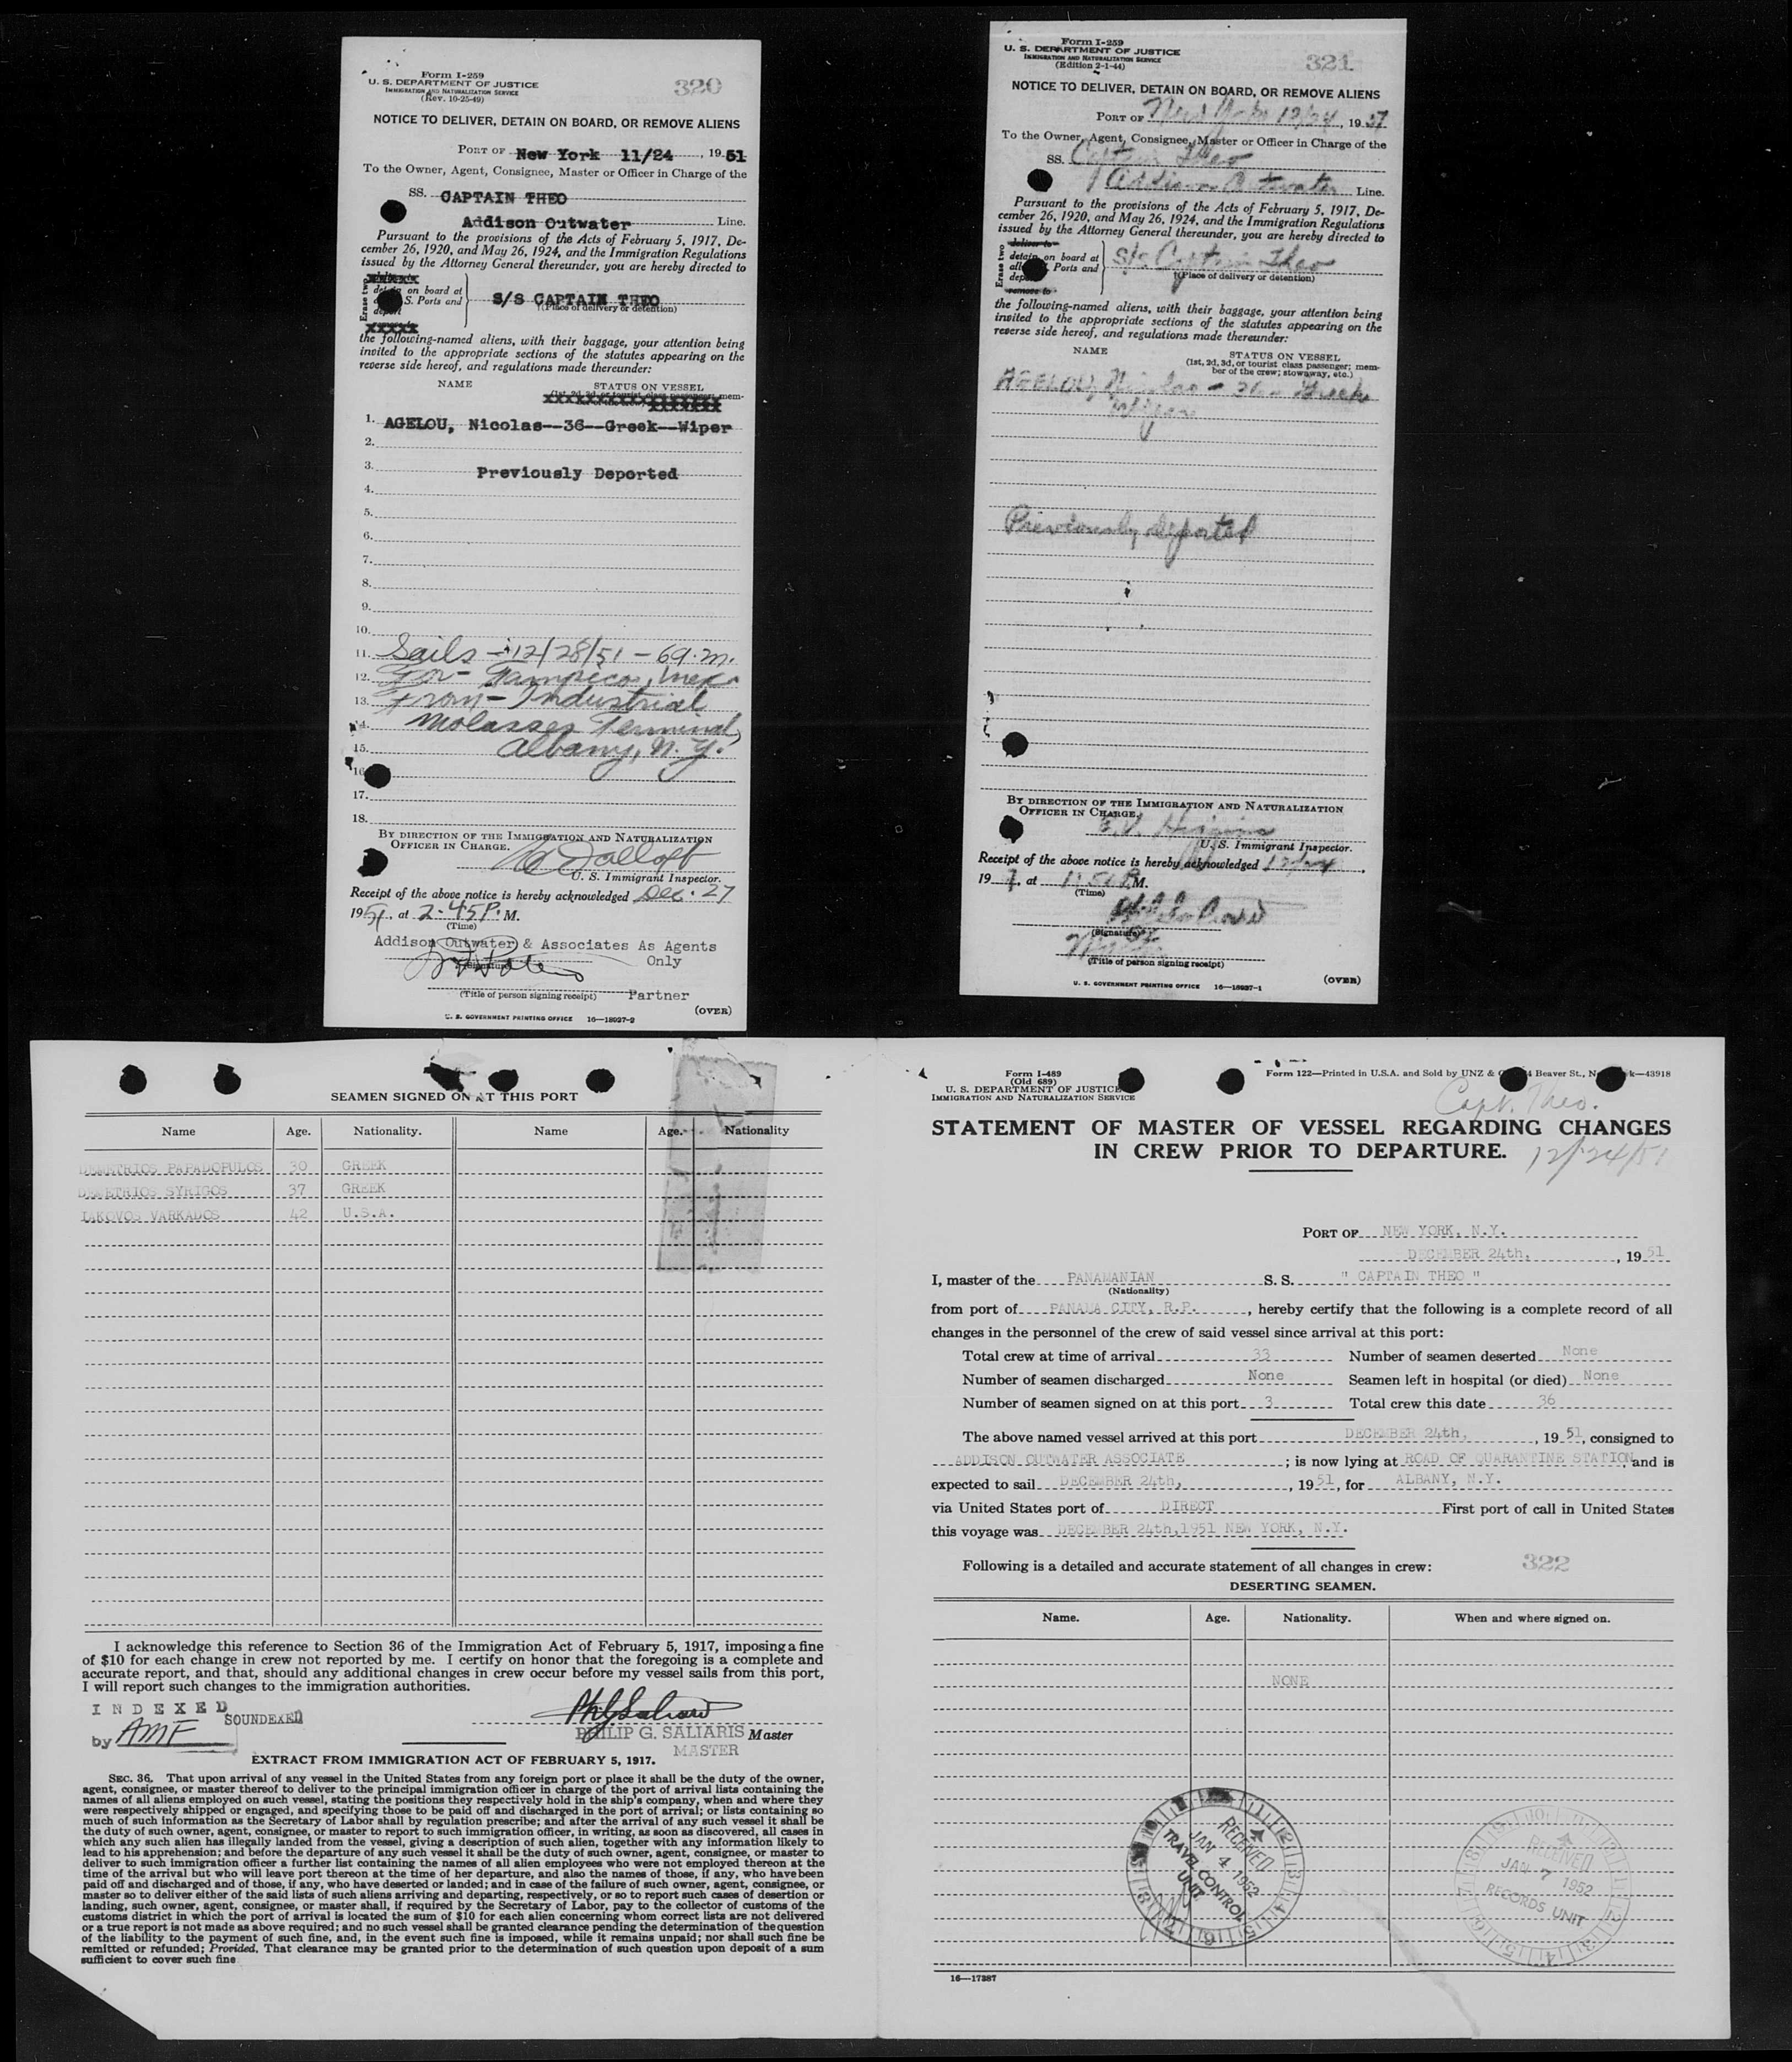 Form I-259
U. S. DEPARTMENT OF JUSTICE
IMMIGRATION AND NATURALIZATION SERVICE
(Rev. 10-25-49)
320
NOTICE TO DELIVER, DETAIN ON BOARD, OR REMOVE ALIENS
PORT OF New York 11/24, 1951
To the Owner, Agent, Consignee, Master or Officer in Charge of the
SS. CAPTAIN THEO
Addison Outwater Line.
Pursuant to the provisions of the Acts of February 5, 1917, De-
cember 26, 1920, and May 26, 1924, and the Immigration Regulations
issued by the Attorney General thereunder, you are hereby directed to
Erase two
on board at
S. Ports and
deport
S/S CAPTAIN THEO
(Place of delivery or detention)
the following-named aliens, with their baggage, your attention being
invited to the appropriate sections of the statutes appearing on the
reverse side hereof, and regulations made thereunder:
NAME
STATUS ON VESSEL
(1st, 2d, 3d, or tourist class passenger; mem-
1. AGELOU, Nicolas--36--Greek--Wiper
2.
3. Previously Deported
4.
5.
6.
7.
8.
9.
10.
11. Sails - 12/28/51 - 6 a.m.
12. For - Tampico, Mex.
13. From - Industrial
14. Molasses Terminal,
15. Albany, N.Y.
16
17.
18.
BY DIRECTION OF THE IMMIGRATION AND NATURALIZATION
OFFICER IN CHARGE.
U. S. Immigrant Inspector.
Receipt of the above notice is hereby acknowledged Dec. 27
1951, at 2-45 P. M.
(Time)
Addison Outwater & Associates As Agents
Only
(Signature)
(Title of person signing receipt) Partner
(OVER)
U. S. GOVERNMENT PRINTING OFFICE 16—18927-2
Form I-259
U. S. DEPARTMENT OF JUSTICE
IMMIGRATION AND NATURALIZATION SERVICE
(Edition 2-1-44)
321
NOTICE TO DELIVER, DETAIN ON BOARD, OR REMOVE ALIENS
PORT OF New York 12/24, 1951
To the Owner, Agent, Consignee, Master or Officer in Charge of the
SS. Captain Theo
Addison Outwater Line.
Pursuant to the provisions of the Acts of February 5, 1917, De-
cember 26, 1920, and May 26, 1924, and the Immigration Regulations
issued by the Attorney General thereunder, you are hereby directed to
Erase two
deliver to
detain on board at
all Ports and
remove to
S/S Captain Theo
(Place of delivery or detention)
the following-named aliens, with their baggage, your attention being
invited to the appropriate sections of the statutes appearing on the
reverse side hereof, and regulations made thereunder:
NAME
STATUS ON VESSEL
(1st, 2d, 3d, or tourist class passenger; mem-
ber of the crew; stowaway, etc.)
AGELOU, Nicolas - 36 - Greek
Wiper
Previously deported
BY DIRECTION OF THE IMMIGRATION AND NATURALIZATION
OFFICER IN CHARGE.
U. S. Immigrant Inspector.
Receipt of the above notice is hereby acknowledged 12/24,
19 , at P.M.
(Time)
(Signature)
(Title of person signing receipt)
(OVER)
U. S. GOVERNMENT PRINTING OFFICE 16—18927-1
SEAMEN SIGNED ON AT THIS PORT
Name Age. Nationality. Name Age. Nationality
DEMETRIOS PAPADOPULOS 30 GREEK
DEMETRIOS SYRIGOS 37 GREEK
IAKOVOS VARKADOS 42 U.S.A.
I acknowledge this reference to Section 36 of the Immigration Act of February 5, 1917, imposing a fine
of $10 for each change in crew not reported by me. I certify on honor that the foregoing is a complete and
accurate report, and that, should any additional changes in crew occur before my vessel sails from this port,
I will report such changes to the immigration authorities.
INDEXED
SOUNDEXED
by AMF
PHILIP G. SALIARIS Master
MASTER
EXTRACT FROM IMMIGRATION ACT OF FEBRUARY 5, 1917.
SEC. 36. That upon arrival of any vessel in the United States from any foreign port or place it shall be the duty of the owner,
agent, consignee, or master thereof to deliver to the principal immigration officer in charge of the port of arrival lists containing the
names of all aliens employed on such vessel, stating the positions they respectively hold in the ship's company, when and where they
were respectively shipped or engaged, and specifying those to be paid off and discharged in the port of arrival; or lists containing so
much of such information as the Secretary of Labor shall by regulation prescribe; and after the arrival of any such vessel it shall be
the duty of such owner, agent, consignee, or master to report to such immigration officer, in writing, as soon as discovered, all cases in
which any such alien has illegally landed from the vessel, giving a description of such alien, together with any information likely to
lead to his apprehension; and before the departure of any such vessel it shall be the duty of such owner, agent, consignee, or master to
deliver to such immigration officer a further list containing the names of all alien employees who were not employed thereon at the
time of the arrival but who will leave port thereon at the time of her departure, and also the names of those, if any, who have been
paid off and discharged and of those, if any, who have deserted or landed; and in case of the failure of such owner, agent, consignee, or
master so to deliver either of the said lists of such aliens arriving and departing, respectively, or so to report such cases of desertion or
landing, such owner, agent, consignee, or master shall, if required by the Secretary of Labor, pay to the collector of customs of the
customs district in which the port of arrival is located the sum of $10 for each alien concerning whom correct lists are not delivered
or a true report is not made as above required; and no such vessel shall be granted clearance pending the determination of the question
of the liability to the payment of such fine, and, in the event such fine is imposed, while it remains unpaid; nor shall such fine be
remitted or refunded; Provided, That clearance may be granted prior to the determination of such question upon deposit of a sum
sufficient to cover such fine
Form I-489
(Old 689)
U. S. DEPARTMENT OF JUSTICE
IMMIGRATION AND NATURALIZATION SERVICE
Form 122—Printed in U.S.A. and Sold by UNZ & Beaver St., —43918
Capt. Theo.
STATEMENT OF MASTER OF VESSEL REGARDING CHANGES
IN CREW PRIOR TO DEPARTURE.
12/24/51
PORT OF NEW YORK, N.Y.
DECEMBER 24th, , 1951
I, master of the PANAMANIAN S. S. " CAPTAIN THEO "
(Nationality)
from port of PANAMA CITY, R.P. , hereby certify that the following is a complete record of all
changes in the personnel of the crew of said vessel since arrival at this port:
Total crew at time of arrival 33 Number of seamen deserted None
Number of seamen discharged None Seamen left in hospital (or died) None
Number of seamen signed on at this port 3 Total crew this date 36
The above named vessel arrived at this port DECEMBER 24th, , 1951, consigned to
ADDISON OUTWATER ASSOCIATE ; is now lying at ROAD OF QUARANTINE STATION, and is
expected to sail DECEMBER 24th, , 1951, for ALBANY, N.Y.
via United States port of DIRECT First port of call in United States
this voyage was DECEMBER 24th,1951 NEW YORK, N.Y.
Following is a detailed and accurate statement of all changes in crew:
322
DESERTING SEAMEN.
Name. Age. Nationality. When and where signed on.
NONE
RECEIVED
JAN 4 1952
TRAVEL CONTROL
UNIT
RECEIVED
JAN 7 1952
RECORDS UNIT
16—17387